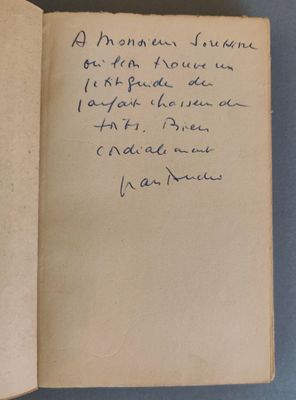 A Monsieur
où l'on trouve un
petit guide du
parfait chasseur de
forts. Bien
cordialement